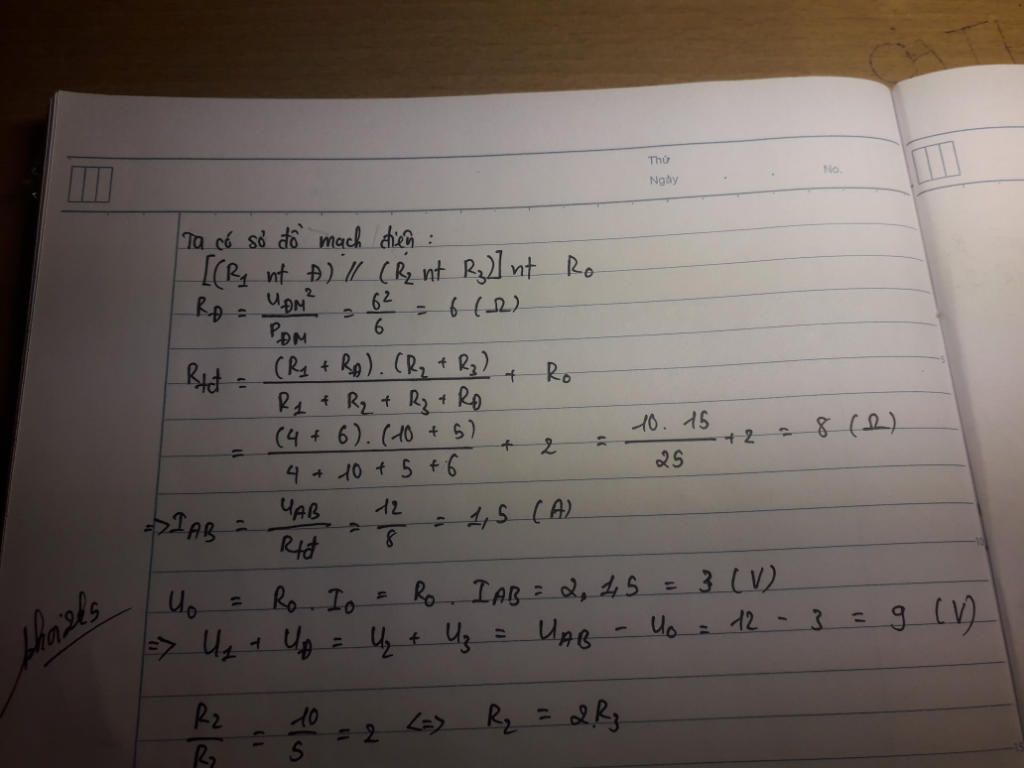 Thứ
Ngày . . No.
Ta có sơ đồ mạch điện :
[(R₁ nt Đ) // (R₂ nt R₃)] nt R₀
R_Đ = U_ĐM² / P_ĐM = 6² / 6 = 6 (Ω)
R_tđ = (R₁ + R_Đ) . (R₂ + R₃) / R₁ + R₂ + R₃ + R_Đ + R₀
= (4 + 6) . (10 + 5) / 4 + 10 + 5 + 6 + 2 = 10 . 15 / 25 + 2 = 8 (Ω)
=> I_AB = U_AB / R_tđ = 12 / 8 = 1,5 (A)
U₀ = R₀ . I₀ = R₀ . I_AB = 2, 1,5 = 3 (V)
=> U₁ + U_Đ = U₂ + U₃ = U_AB - U₀ = 12 - 3 = 9 (V)
R₂ / R₃ = 10 / 5 = 2 <=> R₂ = 2R₃
5
10
15